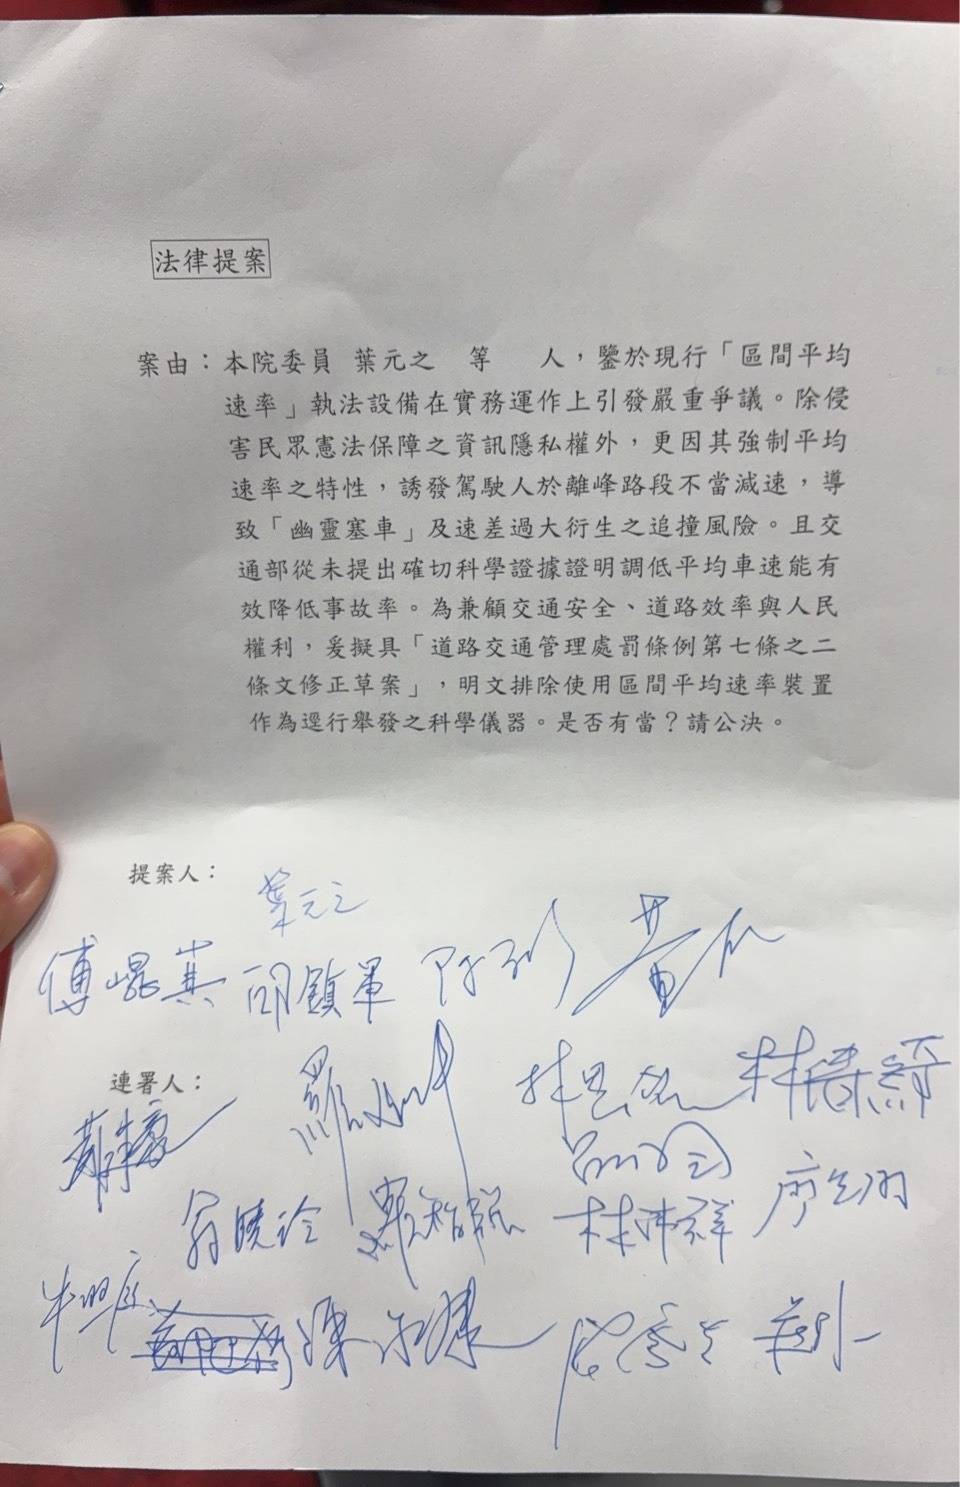 法律提案
案由：本院委員 葉元之 等 人，鑒於現行「區間平均
速率」執法設備在實務運作上引發嚴重爭議。除侵
害民眾憲法保障之資訊隱私權外，更因其強制平均
速率之特性，誘發駕駛人於離峰路段不當減速，導
致「幽靈塞車」及速差過大衍生之追撞風險。且交
通部從未提出確切科學證據證明調低平均車速能有
效降低事故率。為兼顧交通安全、道路效率與人民
權利，爰擬具「道路交通管理處罰條例第七條之二
條文修正草案」，明文排除使用區間平均速率裝置
作為逕行舉發之科學儀器。是否有當？請公決。
提案人：
葉元之
傅崐萁
連署人：
林思銘 林德福
翁曉玲 羅智強 林沛祥 廷